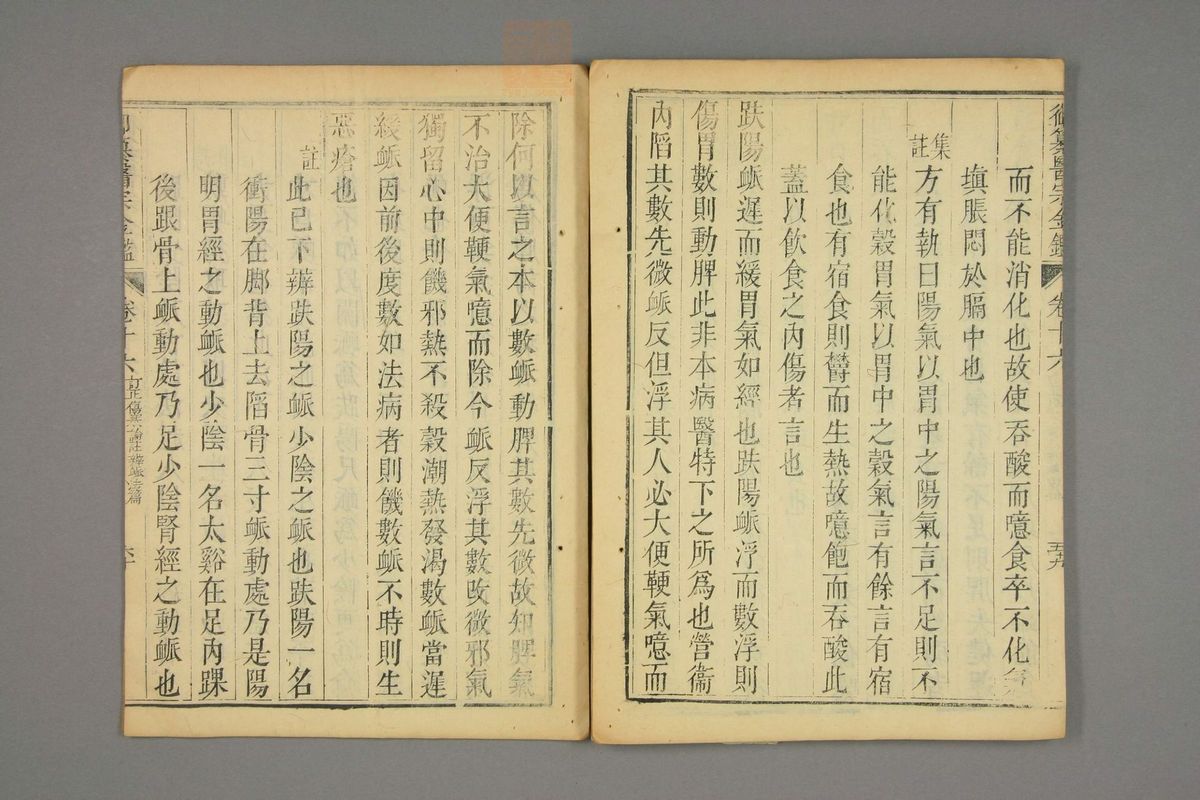 御纂醫宗金鑑 卷十六 五九
而不能消化也故使吞酸而噫食卒不化氣
塡脹悶於膈中也
集註 方有執曰陽氣以胃中之陽氣言不足則不
能化穀胃氣以胃中之穀氣言有餘言有宿
食也有宿食則欝而生熱故噫飽而吞酸此
蓋以飮食之內傷者言也
趺陽䘑遲而緩胃氣如經也趺陽䘑浮而數浮則
傷胃數則動脾此非本病醫特下之所爲也營衞
內陷其數先微䘑反但浮其人必大便鞕氣噫而
除何以言之本以數䘑動脾其數先微故知脾氣
不治大便鞕氣噫而除今䘑反浮其數改微邪氣
獨留心中則饑邪熱不殺穀潮熱發渴數䘑當遲
緩䘑因前後度數如法病者則饑數䘑不時則生
惡瘡也
註 此已下辨趺陽之䘑少陰之䘑也趺陽一名
衝陽在脚背上去陷骨三寸䘑動處乃是陽
明胃經之動䘑也少陰一名太谿在足內踝
後跟骨上䘑動處乃足少陰腎經之動䘑也
御纂醫宗金鑑 卷十六 訂正傷寒論註辨䘑法篇 六十